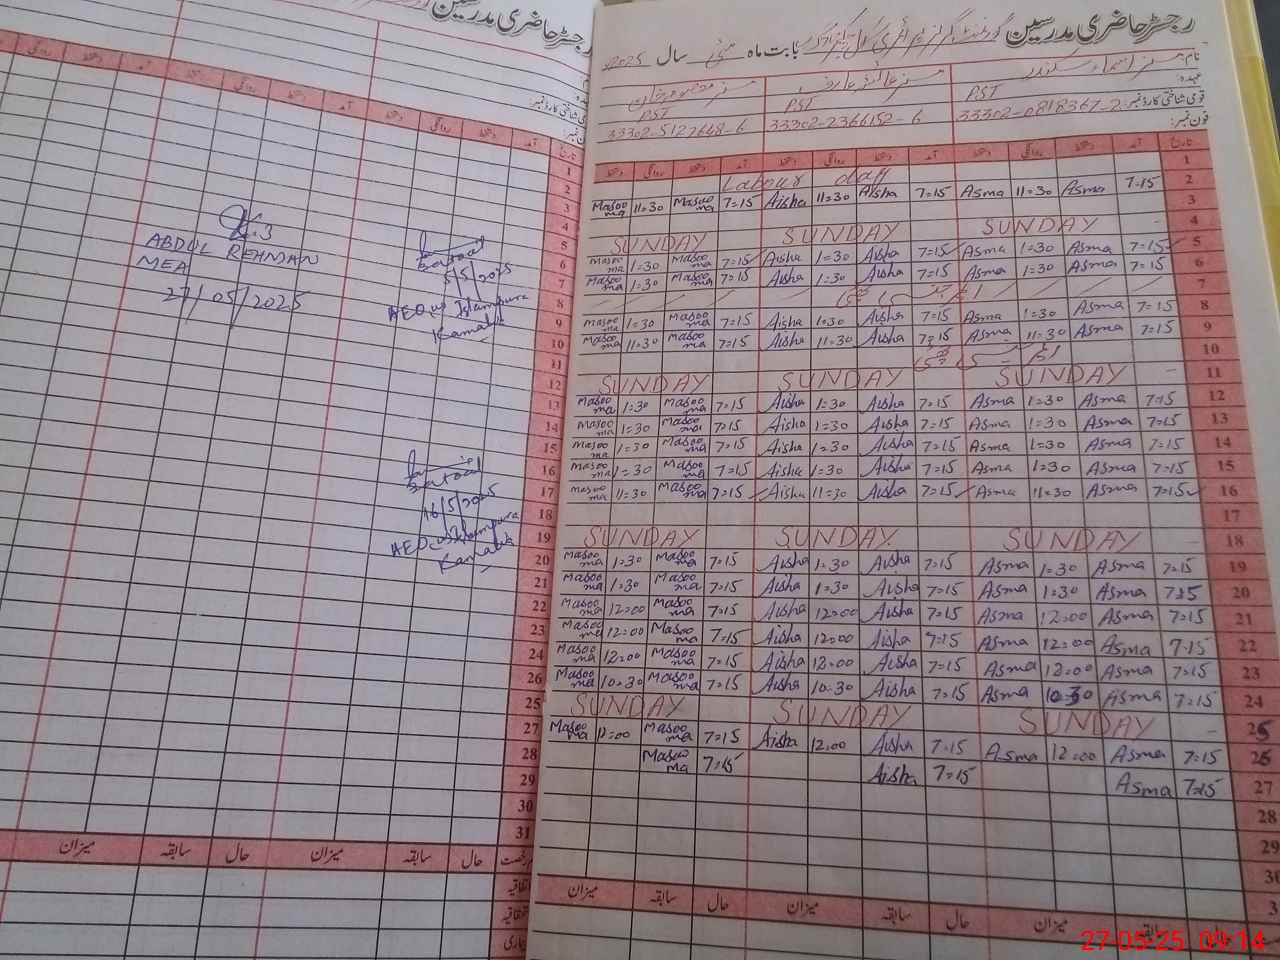 رجسٹر حاضری مدرسین
بابت ماہ مئی سال 2025
نام:
عہدہ: PST PST PST
قومی شناختی کارڈ نمبر: 33302-0818367-2 33302-2366152-6 33302-5127648-6
فون نمبر:
تاریخ آمد دستخط روانگی دستخط آمد دستخط روانگی دستخط آمد دستخط روانگی دستخط
1 Labour day
2 7=15 Asma 11=30 Asma 7=15 Aisha 11=30 Aisha 7=15 Masooma 11=30 Masooma
3
4 SUNDAY SUNDAY SUNDAY
5 7=15 Asma 1=30 Asma 7=15 Aisha 1=30 Aisha 7=15 Masooma 1=30 Masooma
6 7=15 Asma 1=30 Asma 7=15 Aisha 1=30 Aisha 7=15 Masooma 1=30 Masooma
7
8 7=15 Asma 1=30 Asma 7=15 Aisha 1=30 Aisha 7=15 Masooma 1=30 Masooma
9 7=15 Asma 11=30 Asma 7=15 Aisha 11=30 Aisha 7=15 Masooma 11=30 Masooma
10
11 SUNDAY SUNDAY SUNDAY
12 7=15 Asma 1=30 Asma 7=15 Aisha 1=30 Aisha 7=15 Masooma 1=30 Masooma
13 7=15 Asma 1=30 Asma 7=15 Aisha 1=30 Aisha 7=15 Masooma 1=30 Masooma
14 7=15 Asma 1=30 Asma 7=15 Aisha 1=30 Aisha 7=15 Masooma 1=30 Masooma
15 7=15 Asma 1=30 Asma 7=15 Aisha 1=30 Aisha 7=15 Masooma 1=30 Masooma
16 7=15 Asma 11=30 Asma 7=15 Aisha 11=30 Aisha 7=15 Masooma 11=30 Masooma
17
18 SUNDAY SUNDAY SUNDAY
19 7=15 Asma 1=30 Asma 7=15 Aisha 1=30 Aisha 7=15 Masooma 1=30 Masooma
20 7=15 Asma 1=30 Asma 7=15 Aisha 1=30 Aisha 7=15 Masooma 1=30 Masooma
21 7=15 Asma 12=00 Asma 7=15 Aisha 12=00 Aisha 7=15 Masooma 12=00 Masooma
22 7=15 Asma 12=00 Asma 7=15 Aisha 12=00 Aisha 7=15 Masooma 12=00 Masooma
23 7=15 Asma 12=00 Asma 7=15 Aisha 12=00 Aisha 7=15 Masooma 12=00 Masooma
24 7=15 Asma 10=30 Asma 7=15 Aisha 10=30 Aisha 7=15 Masooma 10=30 Masooma
25 SUNDAY SUNDAY SUNDAY
26 7=15 Asma 12=00 Asma 7=15 Aisha 12=00 Aisha 7=15 Masooma Masooma
27 7=15 Asma 7=15 Aisha 7=15 Masooma
28
29
30
میزان سابقہ حال میزان سابقہ حال میزان سابقہ
رجسٹر حاضری مدرسین
قومی شناختی کارڈ نمبر:
فون نمبر:
تاریخ آمد دستخط روانگی دستخط آمد دستخط روانگی دستخط
1
2
3
4
5
6
7
8
9
10
11
12
13
14
15
16
17
18
19
20
21
22
23
24
26
25
27
28
29
30
31
ABDUL REHMAN
MEA
27/05/2025
5/5/2025
AEO Islampura
Kamalia
16/5/2025
AEO Islampura
Kamalia
رخصت حال سابقہ میزان حال سابقہ میزان
اتفاقیہ
بیماری
27-05-25 09:14